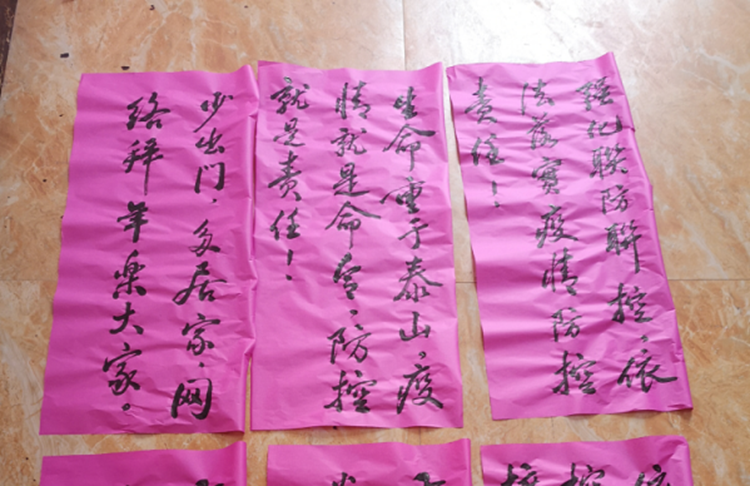 强化联防联控，依
法落实疫情防控
责任！
生命重于泰山，疫
情就是命令，防控
就是责任！
少出门，多居家，网
络拜年乐大家。